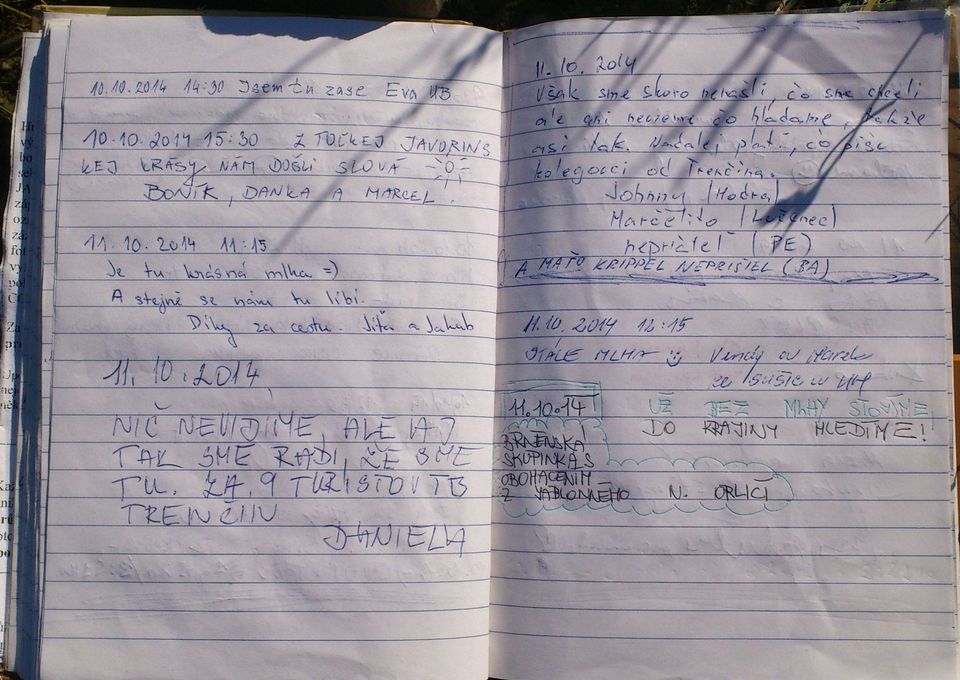 10.10.2014 14:30 Jsem tu zase Eva UB
10.10.2014 15:30 Z TOĽKEJ JAVORINS
KEJ KRÁSY NÁM DOŠLI SLOVÁ
BONÍK, DANKA A MARCEL.
11.10.2014 11:15
Je tu krásná mlha =)
A stejně se nám tu líbí.
Díky za cestu. Jíťa a Jakub
11.10.2014
NIČ NEVIDÍME, ALE AJ
TAK SME RADI, ŽE SME
TU. ZA 9 TURISTOV
TRENČÍN
DANIELA
11.10.2014
Však sme skoro nenašli, čo sme chceli
ale ani nevieme čo hľadáme, takže
asi tak. Naďalej platí, čo píšu
kolegovci od Trenčína.
Johnny (Modra)
Marcelito (Lučenec)
nepriateľ (PE)
A MAŤO KRIPPEL NEPRIŠIEL (BA)
11.10.2014 12:15
STÁLE MLHA
ze Sušic u UH
11.10.14 UŽ BEZ MLHY STOJÍME
DO KRAJINY HLEDÍME!
BRNĚNSKÁ
SKUPINKA S
OBOHACENÍM
Z JABLONNÉHO N. ORLICÍ